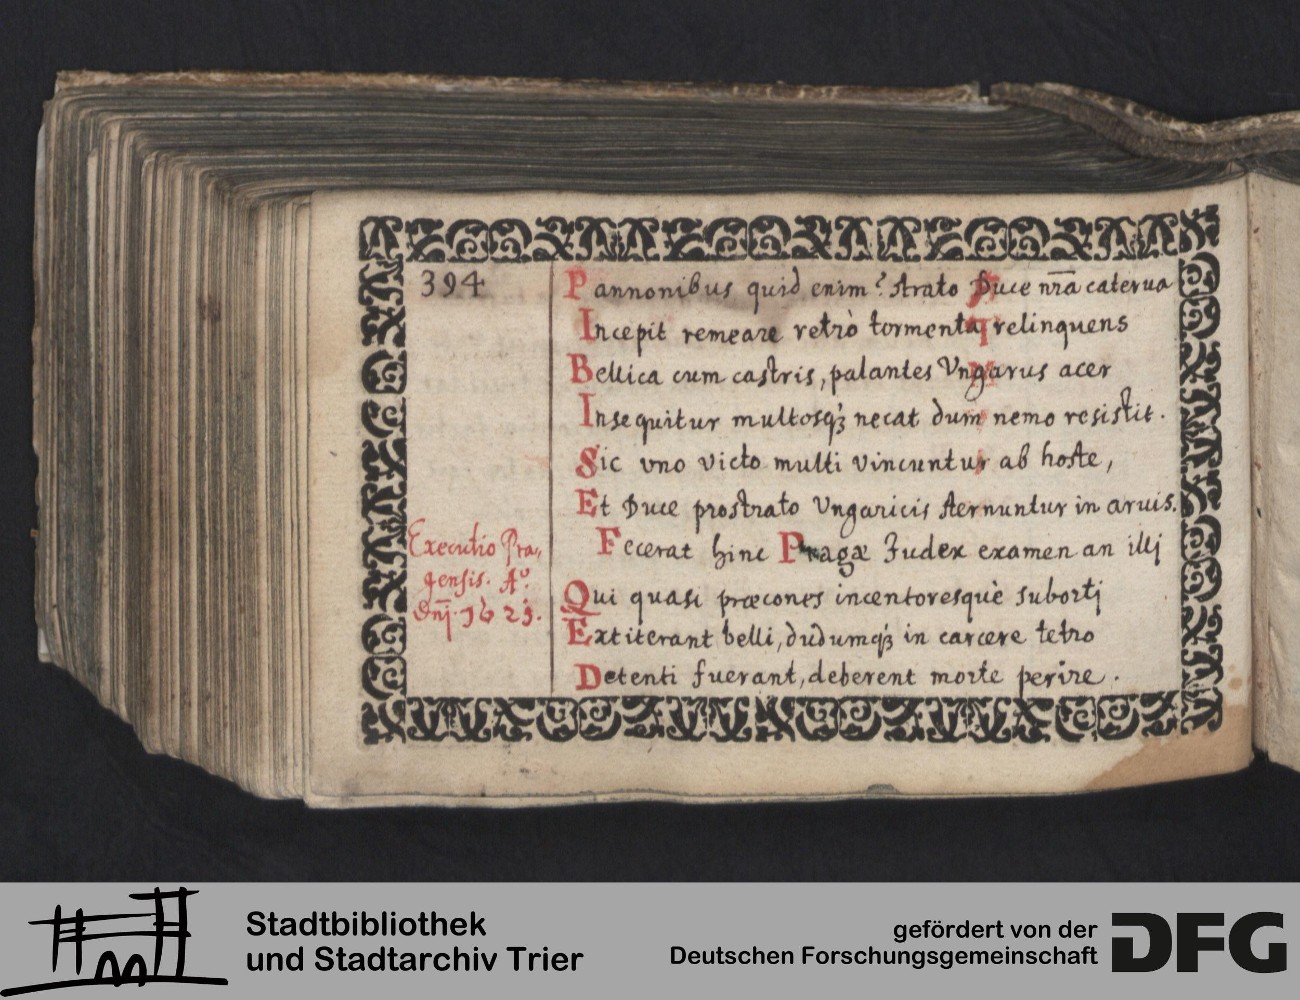 394
Pannonibus quid enim? strato Duce nr̄a caterua
Incepit remeare retrò tormenta relinquens
Bellica cum castris, palantes Vngarus acer
Insequitur multosqꝫ necat dum nemo resistit.
Sic vno victo multi vincuntur ab hoste,
Et Duce prostrato Vngaricis sternuntur in aruis.
Fecerat hinc Pragæ Judex examen an illj
Qui quasi præcones incentoresquè subortj
Extiterant belli, dudumqꝫ in carcere tetro
Detenti fuerant, deberent morte perire.
Executio Pra,
gensis. Aº.
Dn̄j. 1621.
Stadtbibliothek
und Stadtarchiv Trier
gefördert von der
Deutschen Forschungsgemeinschaft
DFG